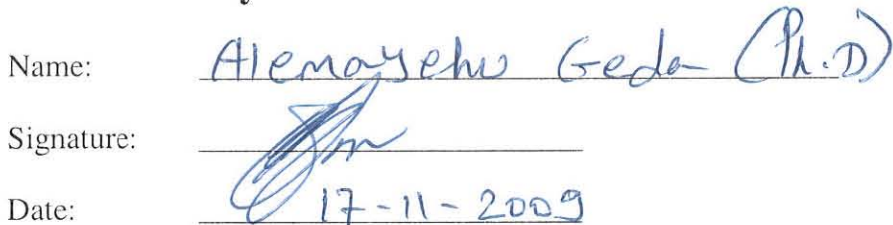 Name: Alemayehu Geda (Ph.D)
Signature:
Date: 17-11-2009